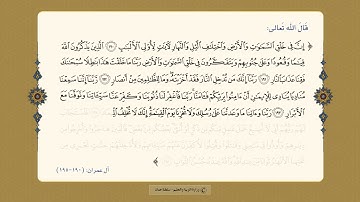 قال الله تعالى:
﴿ إِنَّ فِي خَلْقِ السَّمَاوَاتِ وَالْأَرْضِ وَاخْتِلَافِ اللَّيْلِ وَالنَّهَارِ لَآيَاتٍ لِّأُولِي الْأَلْبَابِ ۝١٩٠ الَّذِينَ يَذْكُرُونَ اللَّهَ
قِيَامًا وَقُعُودًا وَعَلَىٰ جُنُوبِهِمْ وَيَتَفَكَّرُونَ فِي خَلْقِ السَّمَاوَاتِ وَالْأَرْضِ رَبَّنَا مَا خَلَقْتَ هَٰذَا بَاطِلًا سُبْحَانَكَ
فَقِنَا عَذَابَ النَّارِ ۝١٩١ رَبَّنَا إِنَّكَ مَن تُدْخِلِ النَّارَ فَقَدْ أَخْزَيْتَهُ وَمَا لِلظَّالِمِينَ مِنْ أَنصَارٍ ۝١٩٢ رَّبَّنَا إِنَّنَا سَمِعْنَا
مُنَادِيًا يُنَادِي لِلْإِيمَانِ أَنْ آمِنُوا بِرَبِّكُمْ فَآمَنَّا رَبَّنَا فَاغْفِرْ لَنَا ذُنُوبَنَا وَكَفِّرْ عَنَّا سَيِّئَاتِنَا وَتَوَفَّنَا مَعَ
الْأَبْرَارِ ۝١٩٣ رَبَّنَا وَآتِنَا مَا وَعَدتَّنَا عَلَىٰ رُسُلِكَ وَلَا تُخْزِنَا يَوْمَ الْقِيَامَةِ إِنَّكَ لَا تُخْلِفُ
آل عمران: (١٩٠-١٩٥)
وزارة التربية والتعليم - سلطنة عمان